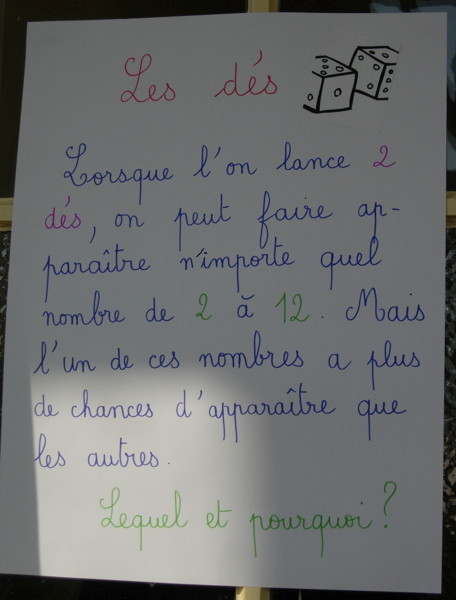 Les dés
Lorsque l'on lance 2
dés, on peut faire ap-
paraître n'importe quel
nombre de 2 à 12. Mais
l'un de ces nombres a plus
de chances d'apparaître que
les autres.
Lequel et pourquoi ?